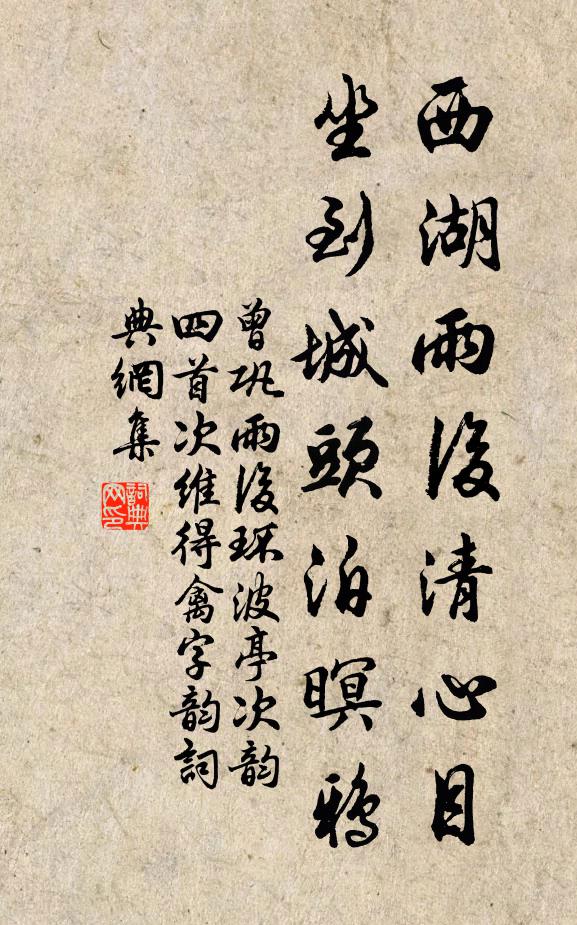 西湖雨後清心目
坐到城頭泊暝鴉
曾巩雨後环波亭次韵
四首次維得禽字韵詞
典網集
詞典
网印